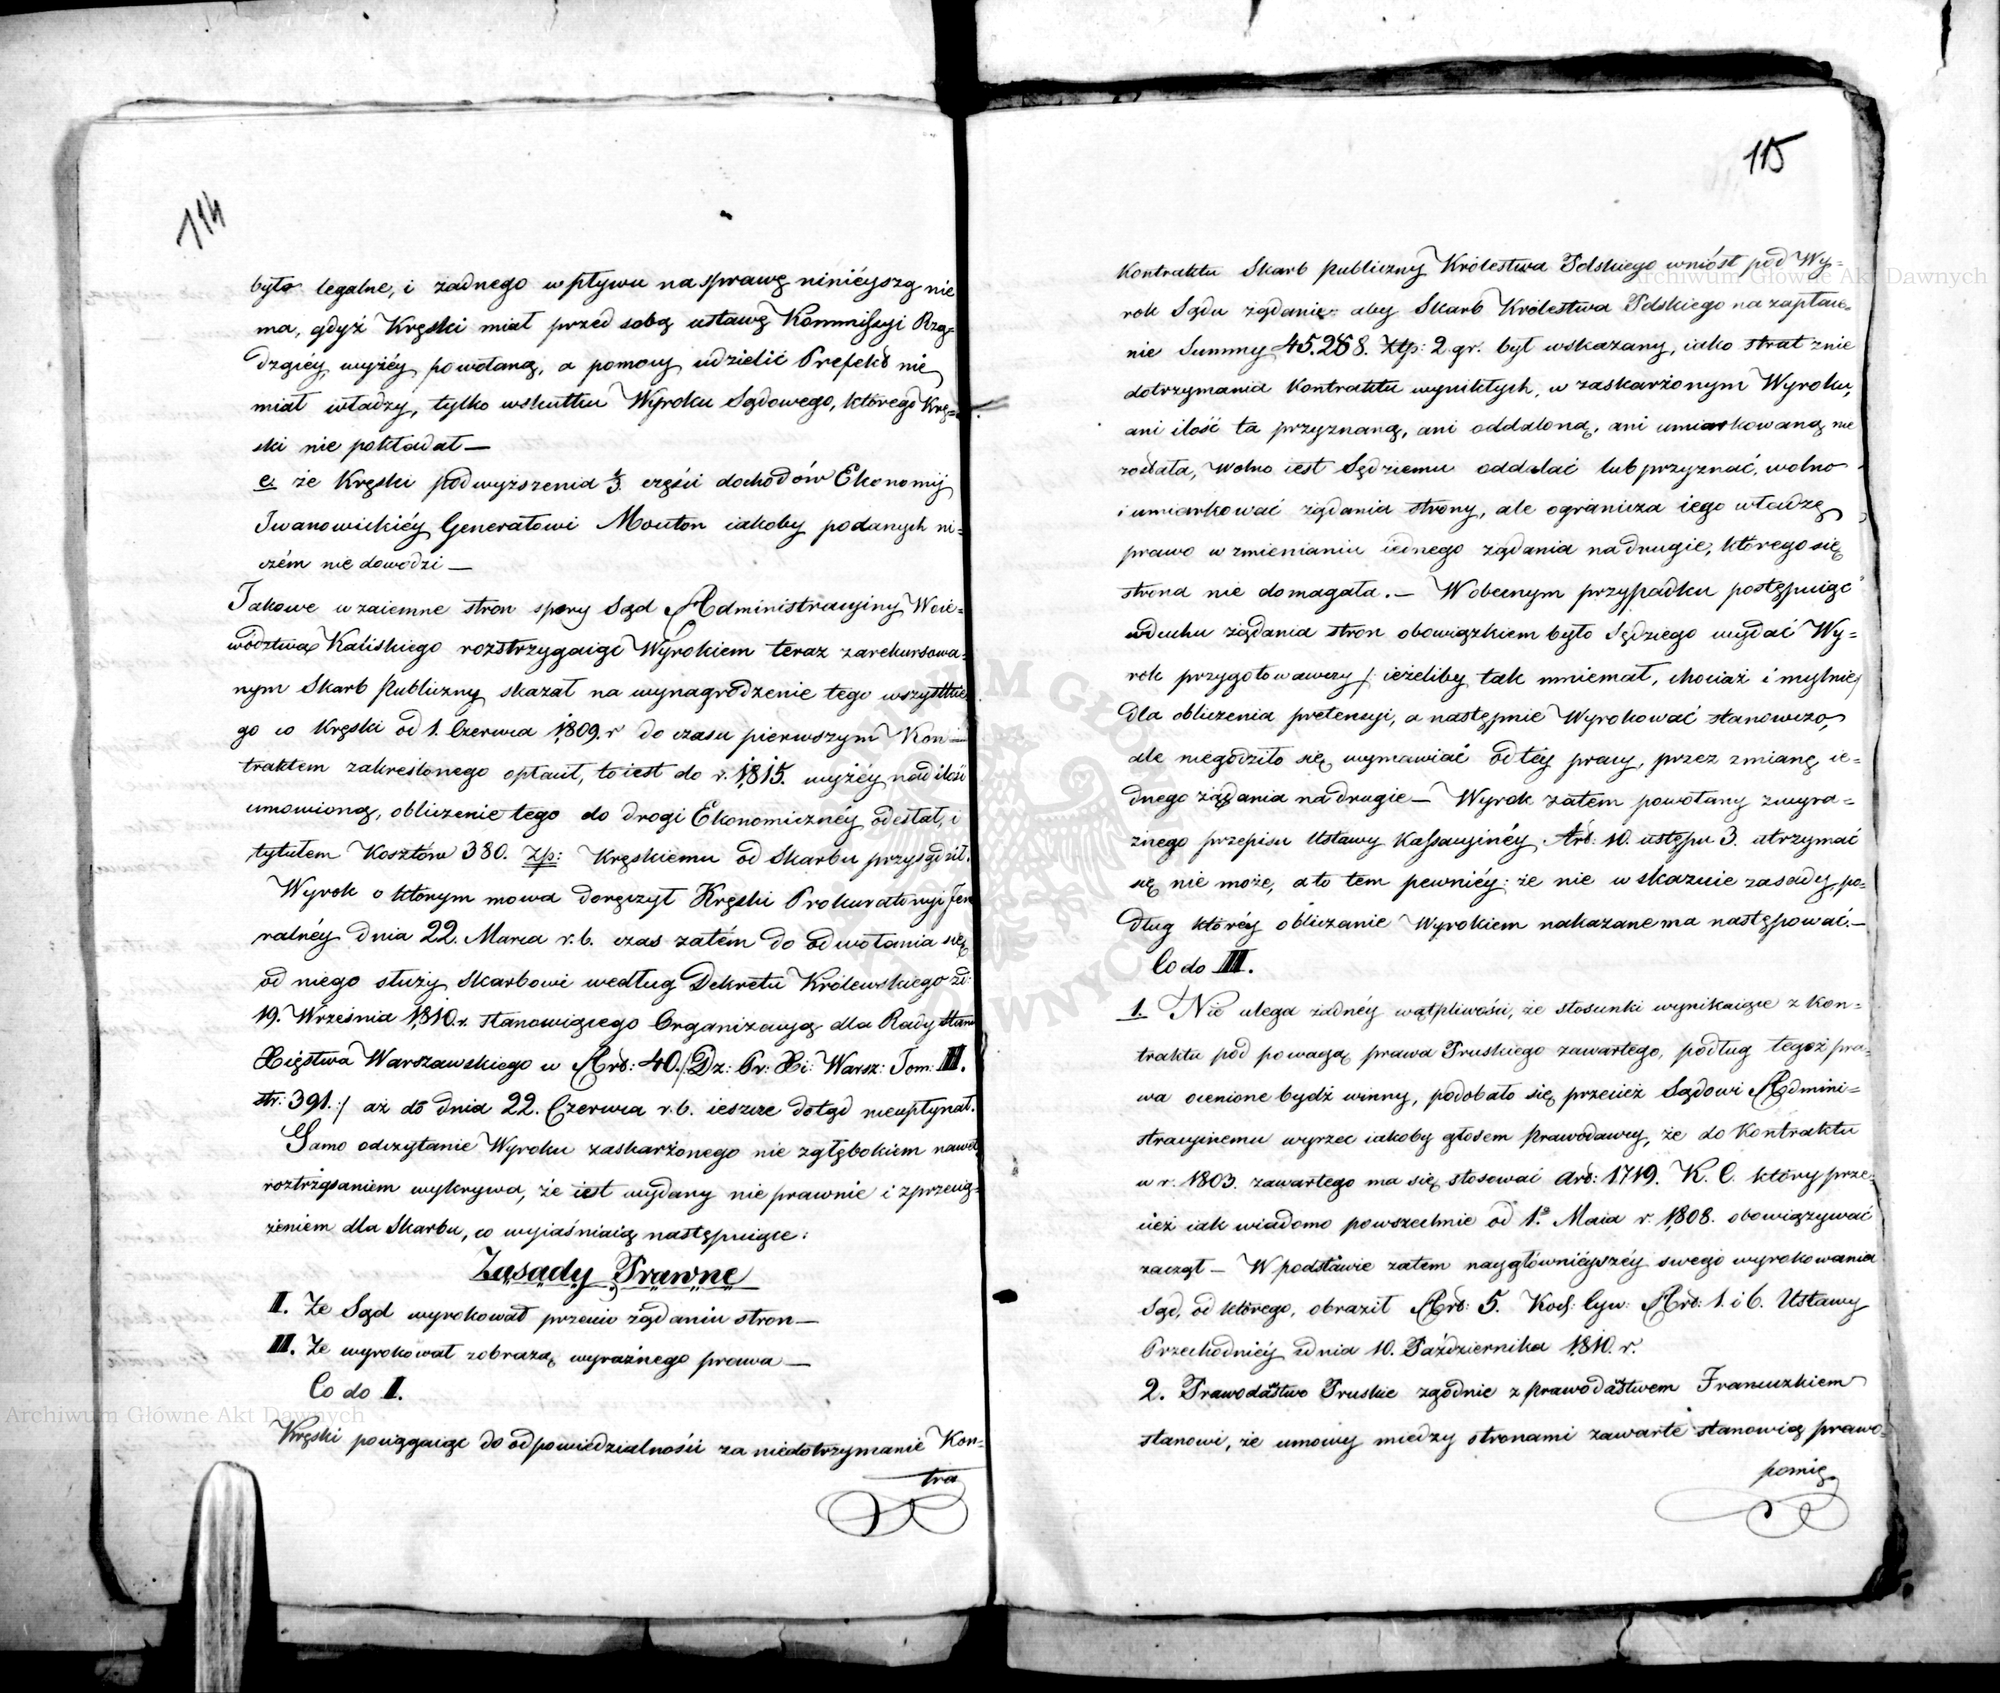 114
było legalne, i żadnego wpływu na sprawę ninieyszą nie
ma, gdyż Kręski miał przed sobą ustawę Kommissyi Rzą=
dzącéy wyżéy powołaną, a pomocy udzielić Prefekt nie
miał władzy, tylko wskutku Wyroku Sądowego, którego Krę=
ski nie pokładał —
e. że Kręski podwyższenia 1/3 części dochodów Ekonomij
Iwanowickiéy Generałowi Mouton iakoby podanych ni=
czém nie dowodzi —
Takowe wzaiemne stron spory Sąd Administracyiny Woie=
wództwa Kaliskiego rozstrzygaiąc Wyrokiem teraz zarekursowa=
nym Skarb Publiczny skazał na wynagrodzenie tego wszystkie
go co Kręski od 1. Czerwca 1809. r do czasu pierwszym Kon=
traktem zakreślonego opłacił, to iest do r. 1815. wyżéy nad ilość
umowioną, obliczenie tego do drogi Ekonomicznéy odesłał, i
tytułem Kosztów 380. Złp: Kręskiemu od Skarbu przysądził.
Wyrok o którym mowa doręczył Kręski Prokuratoryi Jen
ralnéy dnia 22. Marca r. b. czas zatém do odwołania się
od niego służy Skarbowi według Dekretu Królewskiego zd:
19. Września 1810. r. stanowiącego Organizacyą dla Rady Stanu
Xięstwa Warszawskiego w Art: 40. /: Dz: Pr: Xi: Warsz: Tom: II.
str: 391. :/ aż do dnia 22. Czerwca r. b. ieszcze dotąd nieupłynął.
Samo odczytanie Wyroku zaskarżonego nie zgłębokiem nawet
roztrząsaniem wykrywa, że iest wydany nie prawnie i z przecią=
żeniem dla Skarbu, co wyiaśniaią następuiące:
Zasady Prawne
I. Że Sąd wyrokował przeciw żądaniu stron —
II. Że wyrokował z obrazą wyraźnego prawa —
Co do I.
Kręski pociągaiąc do odpowiedzialności za niedotrzymanie Kon=
tra
115
Kontraktu Skarb Publiczny Królestwa Polskiego wniósł pod Wy=
rok Sądu żądanie: aby Skarb Królestwa Polskiego na zapłace=
nie Summy 45.268. Złp: 2 gr. był wskazany, iako strat z nie
dotrzymania Kontraktu wynikłych, w zaskarżonym Wyroku,
ani ilość ta przyznaną, ani oddaloną, ani umiarkowaną nie
została, Wolno iest Sędziemu oddalać lub przyznać, wolno
i umiarkować żądania strony, ale ogranicza iego władzę
prawo w zmienianiu iednego żądania na drugie, którego się
strona nie domagała. — W obecnym przypadku postępuiąc
w duchu żądania stron obowiązkiem było Sędziego wydać Wy=
rok przygotowawczy /: ieżeliby tak mniemał, chociaż i mylnie/
dla obliczenia pretensyi, a następnie Wyrokować stanowczo,
ale niegodziło się wymawiać od téy pracy, przez zmianę ie=
dnego żądania na drugie — Wyrok zatem powołany z wyra=
źnego przepisu Ustawy Kassacyinéy Art: 10. ustępu 3. utrzymać
się nie może, a to tem pewniéy: że nie wskazuie zasady po=
dług któréy obliczanie Wyrokiem nakazane ma następować. —
Co do II.
1. Nie ulega żadnéy wątpliwości, że stosunki wynikaiące z Kon=
traktu pod powagą prawa Pruskiego zawartego, podług tegoż pra=
wa ocenione bydź winny, podobało się przecież Sądowi Admini=
stracyinemu wyrzec iakoby głosem Prawodawcy, że do Kontraktu
w r. 1803. zawartego ma się stosować Art: 1719. K. C. który prze=
cież iak wiadomo powszechnie od 1go Maia r. 1808. obowiązywać
zaczął — W podstawie zatem naygłównieyszéy swego wyrokowania
Sąd, od którego, obraził Art: 5. Kod: Cyw: Art: 1. i 6. Ustawy
Przechodniéy z dnia 10. Października 1810. r.
2. Prawodastwo Pruskie zgodnie z prawodastwem Francuzkiem
stanowi, że umowy miedzy stronami zawarte stanowią prawo
pomię
Archiwum Główne Akt Dawnych
Archiwum Główne Akt Dawnych